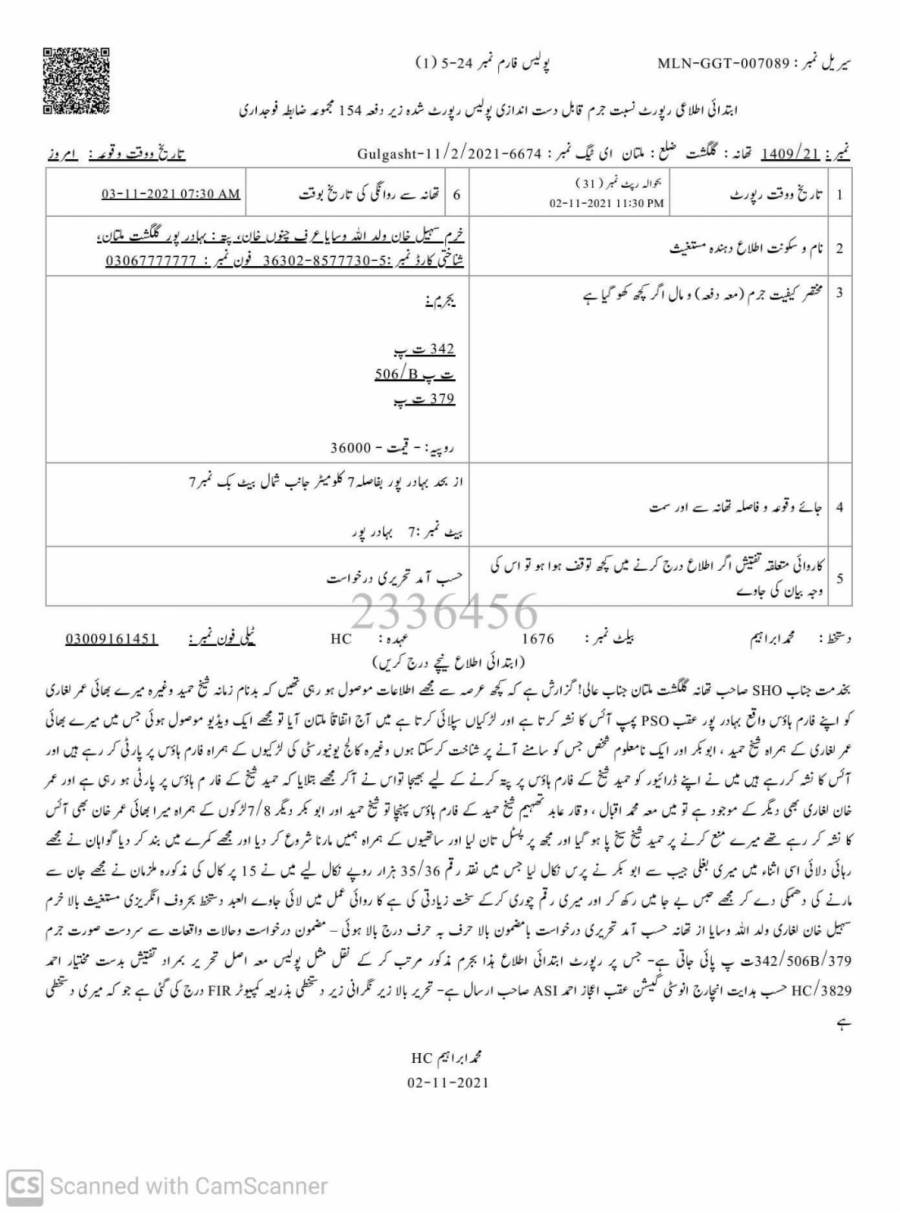 سیریل نمبر : MLN-GGT-007089
پولیس فارم نمبر 24-5 (1)
ابتدائی اطلاعی رپورٹ نسبت جرم قابل دست اندازی پولیس رپورٹ شدہ زیر دفعہ 154 مجموعہ ضابطہ فوجداری
نمبر : 1409/21 تھانہ : گلگشت ضلع : ملتان ای ٹیگ نمبر : Gulgasht-11/2/2021-6674 تاریخ ووقت وقوعہ : امروز
1 تاریخ ووقت رپورٹ
بحوالہ رپٹ نمبر (31)
02-11-2021 11:30 PM
6 تھانہ سے روانگی کی تاریخ بوقت
03-11-2021 07:30 AM
2 نام و سکونت اطلاع دہندہ مستغیث
خرم سہیل خان ولد اللہ وسایا عرف چنوں خان، پتہ : بہادر پور گلگشت ملتان،
شناختی کارڈ نمبر : 36302-8577730-5 فون نمبر : 03067777777
3 مختصر کیفیت جرم (معہ دفعہ) و مال اگر کچھ کھو گیا ہے
بجرم :
342 ت پ
506/B ت پ
379 ت پ
روپیہ : - قیمت - 36000
4 جائے وقوعہ و فاصلہ تھانہ سے اور سمت
از بحد بہادر پور بفاصلہ 7 کلومیٹر جانب شمال بیٹ بک نمبر 7
بیٹ نمبر : 7 بہادر پور
5 کاروائی متعلقہ تفتیش اگر اطلاع درج کرنے میں کچھ توقف ہوا ہو تو اس کی
وجہ بیان کی جاوے
حسب آمد تحریری درخواست
2336456
دستخط : محمد ابراہیم بیلٹ نمبر : 1676 عہدہ : HC ٹیلی فون نمبر : 03009161451
(ابتدائی اطلاع نیچے درج کریں)
بخدمت جناب SHO صاحب تھانہ گلگشت ملتان جناب عالی! گزارش ہے کہ کچھ عرصہ سے مجھے اطلاعات موصول ہو رہی تھیں کہ بدنام زمانہ شیخ حمید وغیرہ میرے بھائی عمر لغاری
کو اپنے فارم ہاؤس واقع بہادر پور عقب PSO پمپ آئس کا نشہ کرتا ہے اور لڑکیاں سپلائی کرتا ہے میں آج اتفاقا ملتان آیا تو مجھے ایک ویڈیو موصول ہوئی جس میں میرے بھائی
عمر لغاری کے ہمراہ شیخ حمید ، ابو بکر اور ایک نامعلوم شخص جس کو سامنے آنے پر شناخت کرسکتا ہوں وغیرہ کالج یونیورسٹی کی لڑکیوں کے ہمراہ فارم ہاؤس پر پارٹی کر رہے ہیں اور
آئس کا نشہ کررہے ہیں میں نے اپنے ڈرائیور کو حمید شیخ کے فارم ہاؤس پر پتہ کرنے کے لیے بھیجا تواس نے آکر مجھے بتلایا کہ حمید شیخ کے فارم ہاؤس پر پارٹی ہو رہی ہے اور عمر
خان لغاری بھی دیگر کے موجود ہے تو میں معہ محمد اقبال ، وقار عابد تھہیم شیخ حمید کے فارم ہاؤس پہنچا تو شیخ حمید اور ابو بکر دیگر 7/8 لڑکوں کے ہمراہ میرا بھائی عمر خان بھی آئس
کا نشہ کر رہے تھے میرے منع کرنے پر حمید شیخ سیخ پا ہو گیا اور مجھ پر پسٹل تان لیا اور ساتھیوں کے ہمراہ ہمیں مارنا شروع کر دیا اور مجھے کمرے میں بند کر دیا گواہان نے مجھے
رہائی دلائی اسی اثناء میں میری بغلی جیب سے ابو بکر نے پرس نکال لیا جس میں نقد رقم 35/36 ہزار روپے نکال لیے میں نے 15 پر کال کی مذکورہ ملزمان نے مجھے جان سے
مارنے کی دھمکی دے کر مجھے حبس بے جا میں رکھ کر اور میری رقم چوری کرکے سخت زیادتی کی ہے کا روائی عمل میں لائی جاوے العبد دستخط بحروف انگریزی مستغیث بالا خرم
سہیل خان لغاری ولد اللہ وسایا از تھانہ حسب آمد تحریری درخواست بامضمون بالا حرف بہ حرف درج بالا ہوئی - مضمون درخواست وحالات واقعات سے سردست صورت جرم
342/506B/379 ت پ پائی جاتی ہے- جس پر رپورٹ ابتدائی اطلاع ہذا بجرم مذکور مرتب کر کے نقل مثل پولیس معہ اصل تحریر بمراد تفتیش بدست مختیار احمد
HC/3829 حسب ہدایت انچارج انوسٹی گیشن عقب اعجاز احمد ASI صاحب ارسال ہے- تحریر بالا زیر نگرانی زیر دستخطی بذریعہ کمپیوٹر FIR درج کی گئی ہے جو کہ میری دستخطی
ہے
محمد ابراہیم HC
02-11-2021
CS Scanned with CamScanner